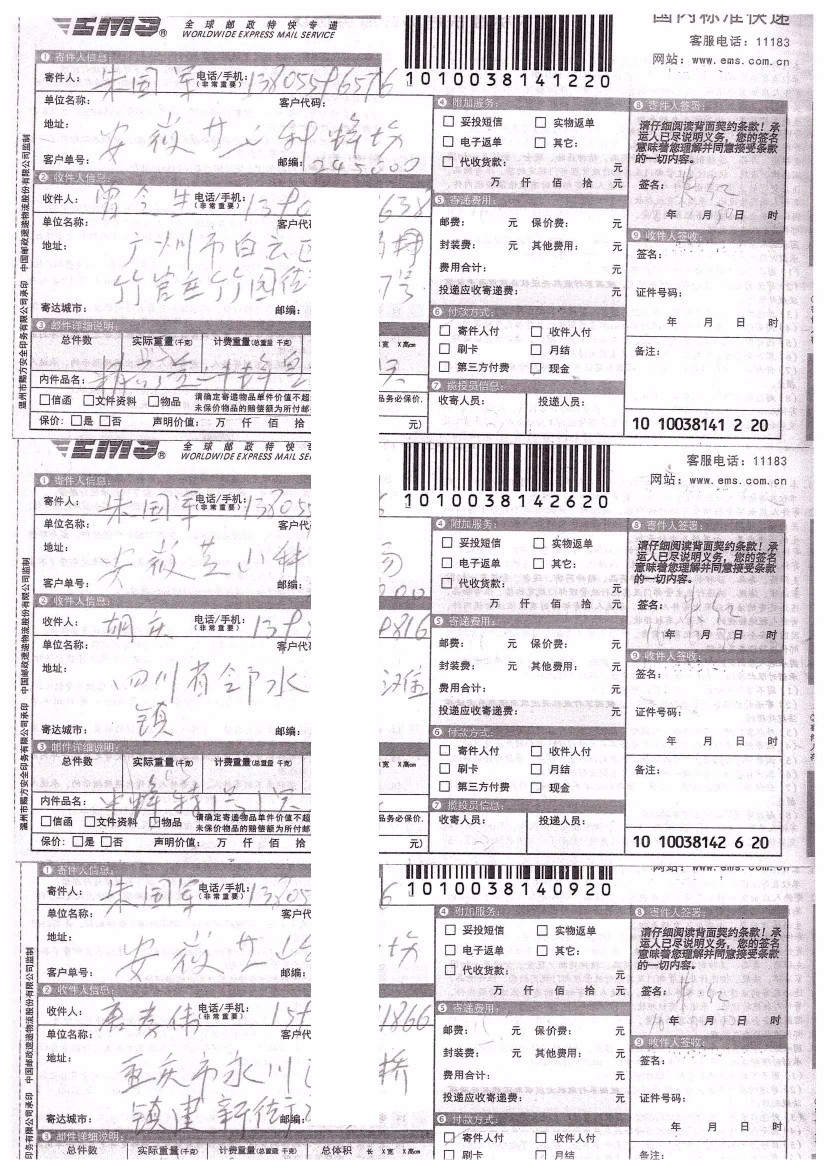 EMS® 全球邮政特快专递
WORLDWIDE EXPRESS MAIL SERVICE
国内标准快递
客服电话：11183
网站：www.ems.com.cn
1010038141220
中国邮政速递物流股份有限公司监制
温州市赐方安全印务有限公司承印
❶ 寄件人信息：
寄件人：朱国军 电话/手机：13805596576
（非常重要）
单位名称： 客户代码：
地址：
安薇 科蜂场
客户单号： 邮编：245600
❷ 收件人信息：
收件人：曾令生 电话/手机：139
（非常重要）
638
单位名称： 客户代
地址：广州市白云区
竹园街
7号
寄达城市： 邮编：
❸ 邮件详细说明：
总件数 实际重量（千克） 计费重量（总重量 千克） X宽 X高cm
内件品名：
□信函 □文件资料 □物品 请确定寄递物品单件价值不超
未保价物品的赔偿额为所付邮
品务必保价，
保价：□是 □否 声明价值： 万 仟 佰 拾 元）
❹ 附加服务：
□ 妥投短信 □ 实物返单
□ 电子返单 □ 其它：
□ 代收货款： 元
万 仟 佰 拾 元
❺ 寄递费用：
邮费： 元 保价费： 元
封装费： 元 其他费用： 元
费用合计： 元
投递应收寄递费： 元
❻ 付款方式：
□ 寄件人付 □ 收件人付
□ 刷卡 □ 月结
□ 第三方付费 □ 现金
❼ 揽投员信息：
收寄人员： 投递人员：
❽ 寄件人签署：
请仔细阅读背面契约条款！承
运人已尽说明义务，您的签名
意味着您理解并同意接受条款
的一切内容。
签名：朱红
年 月 日 时
❾ 收件人签收：
签名：
证件号码：
年 月 日 时
备注：
10 10038141 2 20
EMS® 全球邮政特快专
WORLDWIDE EXPRESS MAIL SE
客服电话：11183
网站：www.ems.com.cn
1010038142620
中国邮政速递物流股份有限公司监制
温州市赐方安全印务有限公司承印
❶ 寄件人信息：
寄件人：朱国军 电话/手机：13805
（非常重要）
单位名称： 客户代
地址：
安薇 山科
客户单号： 邮编：
❷ 收件人信息：
收件人：胡庆 电话/手机：139
（非常重要）
9816
单位名称： 客户代
地址：四川省邻水
滩
镇
寄达城市： 邮编：
❸ 邮件详细说明：
总件数 实际重量（千克） 计费重量（总重量 千克） X宽 X高cm
内件品名：
□信函 □文件资料 □物品 请确定寄递物品单件价值不超
未保价物品的赔偿额为所付邮
品务必保价，
保价：□是 □否 声明价值： 万 仟 佰 拾 元）
❹ 附加服务：
□ 妥投短信 □ 实物返单
□ 电子返单 □ 其它：
□ 代收货款： 元
万 仟 佰 拾 元
❺ 寄递费用：
邮费： 元 保价费： 元
封装费： 元 其他费用： 元
费用合计： 元
投递应收寄递费： 元
❻ 付款方式：
□ 寄件人付 □ 收件人付
□ 刷卡 □ 月结
□ 第三方付费 □ 现金
❼ 揽投员信息：
收寄人员： 投递人员：
❽ 寄件人签署：
请仔细阅读背面契约条款！承
运人已尽说明义务，您的签名
意味着您理解并同意接受条款
的一切内容。
签名：朱红
年 月 日 时
❾ 收件人签收：
签名：
证件号码：
年 月 日 时
备注：
10 10038142 6 20
网站：www.ems.com.cn
1010038140920
中国邮政速递物流股份有限公司监制
印务有限公司承印
❶ 寄件人信息：
寄件人：朱国军 电话/手机：13805
（非常重要）
6
单位名称： 客户代
地址：
安薇 场
客户单号： 邮编：
❷ 收件人信息：
收件人： 电话/手机：
（非常重要）
1866
单位名称： 客户代
地址：重庆市永川
桥
镇建新街
寄达城市： 邮编：
❸ 邮件详细说明：
总件数 实际重量（千克） 计费重量（总重量 千克） 总体积 长 X宽 X高cm
❹ 附加服务：
□ 妥投短信 □ 实物返单
□ 电子返单 □ 其它：
□ 代收货款： 元
万 仟 佰 拾 元
❺ 寄递费用：
邮费： 元 保价费： 元
封装费： 元 其他费用： 元
费用合计： 元
投递应收寄递费： 元
❻ 付款方式：
□ 寄件人付 □ 收件人付
□ 刷卡 □ 月结
❽ 寄件人签署：
请仔细阅读背面契约条款！承
运人已尽说明义务，您的签名
意味着您理解并同意接受条款
的一切内容。
签名：朱红
年 月 日 时
❾ 收件人签收：
签名：
证件号码：
年 月 日 时
备注：